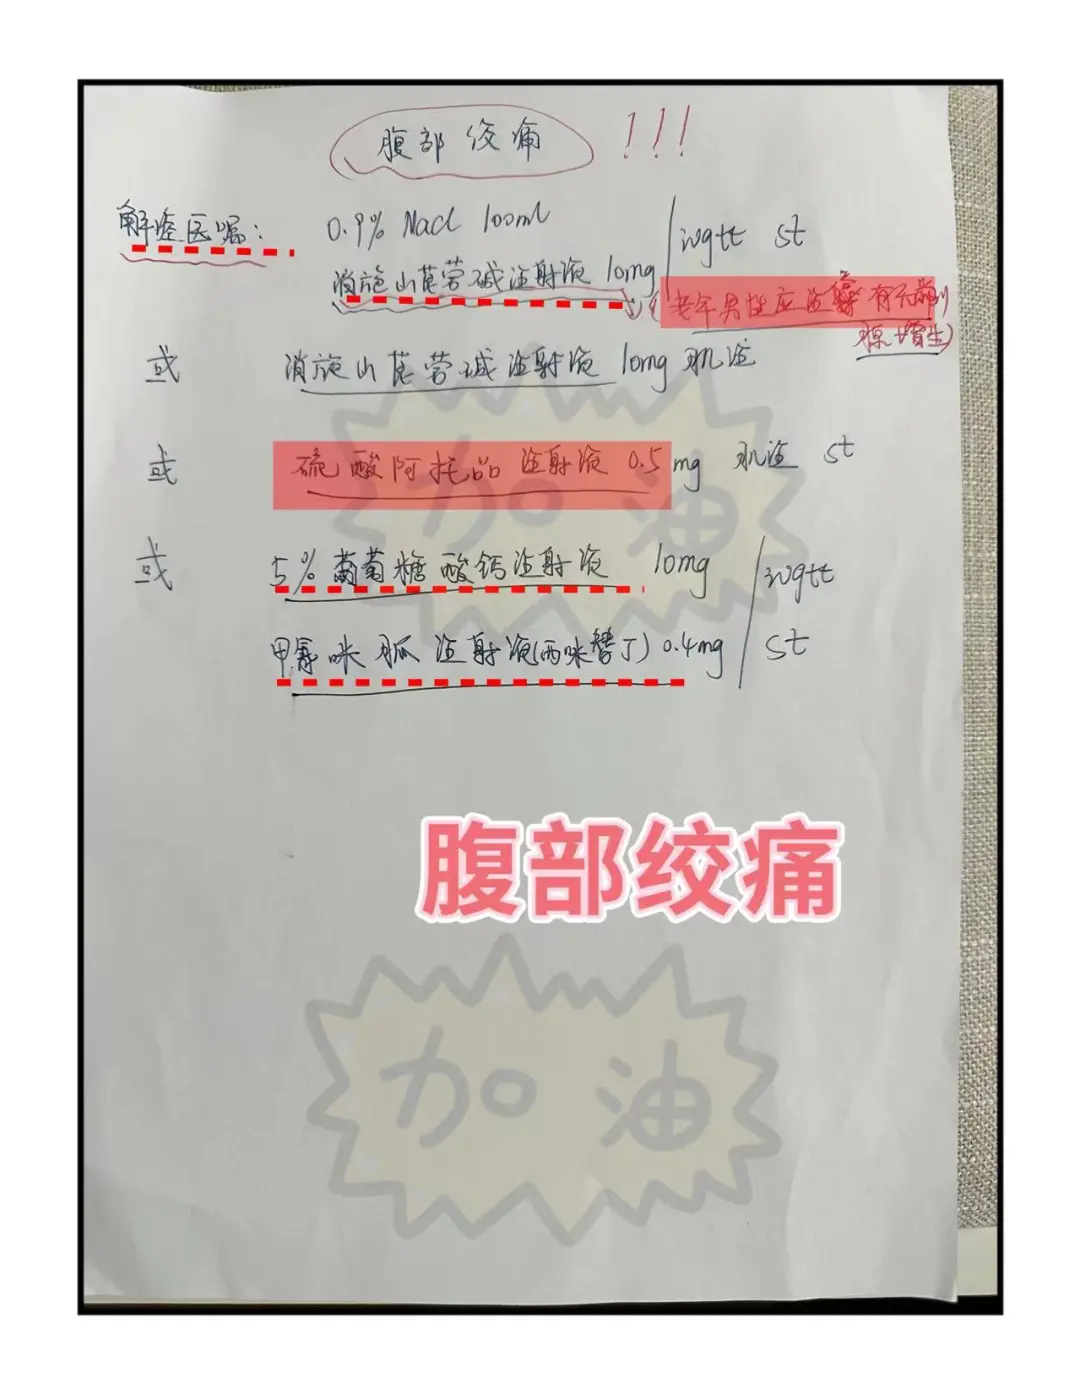 腹部绞痛 !!!
解痉医嘱: 0.9% Nacl 100ml
消旋山莨菪碱注射液 10mg ivgtt st
(老年男性应注意有无前列
腺增生)
或 消旋山莨菪碱注射液 10mg 肌注
或 硫酸阿托品注射液 0.5mg 肌注 st
或 5% 葡萄糖酸钙注射液 10mg ivgtt
甲氰咪胍注射液(西咪替丁) 0.4mg st
加油
腹部绞痛
加油